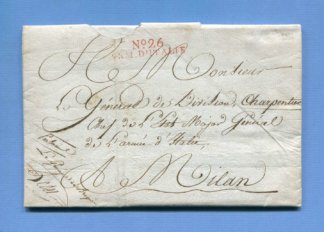 Nº 26
ARM. D'ITALIE
A Monsieur
Le Général de Division Charpentier
Chef de l'Etat Major Général
de l'armée d'Italie,
A Milan